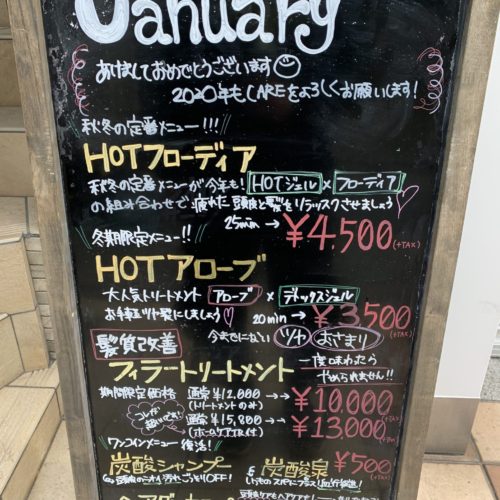 January
あけましておめでとうございます
2020年もCAREをよろしくお願いします!
秋冬の定番メニュー!!!
HOTフローディア
秋冬の定番メニューが今年も! HOTジェル×フローディア
の組み合わせで疲れた頭皮と髪をリラックスさせましょう♡
25min → ¥4,500(+TAX)
冬期限定メニュー!!
HOTアローブ
大人気トリートメント アローブ × デトックスジェル
お手軽ツヤ髪にしましょう♡ 20min → ¥3,500(+TAX)
髪質改善 今までにないツヤ おさまり
フィラートリートメント 一度味わったら
やめられません!!
期間限定価格 通常¥12,000 →→ ¥10,000(+TAX)
(トリートメントのみ)
コレが超いいです!
通常¥15,800 →→ ¥13,000(+TAX)
(ホームケア付)
ワンコインメニュー復活!
炭酸シャンプー & 炭酸泉 ¥500(+TAX)
頭皮の 汚れごっそりOFF!
いつものスパにプラス!